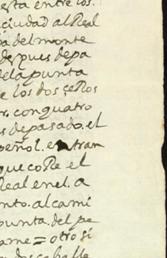 esta entre los
ciudad al Real
pa del monte
despues depa
dela punta
e los dos çeRos
conquatro
des depasado. el
pañol. entram
que coRe el
Real enel. a
nto. al cami
punta. del pe
ame = otro si